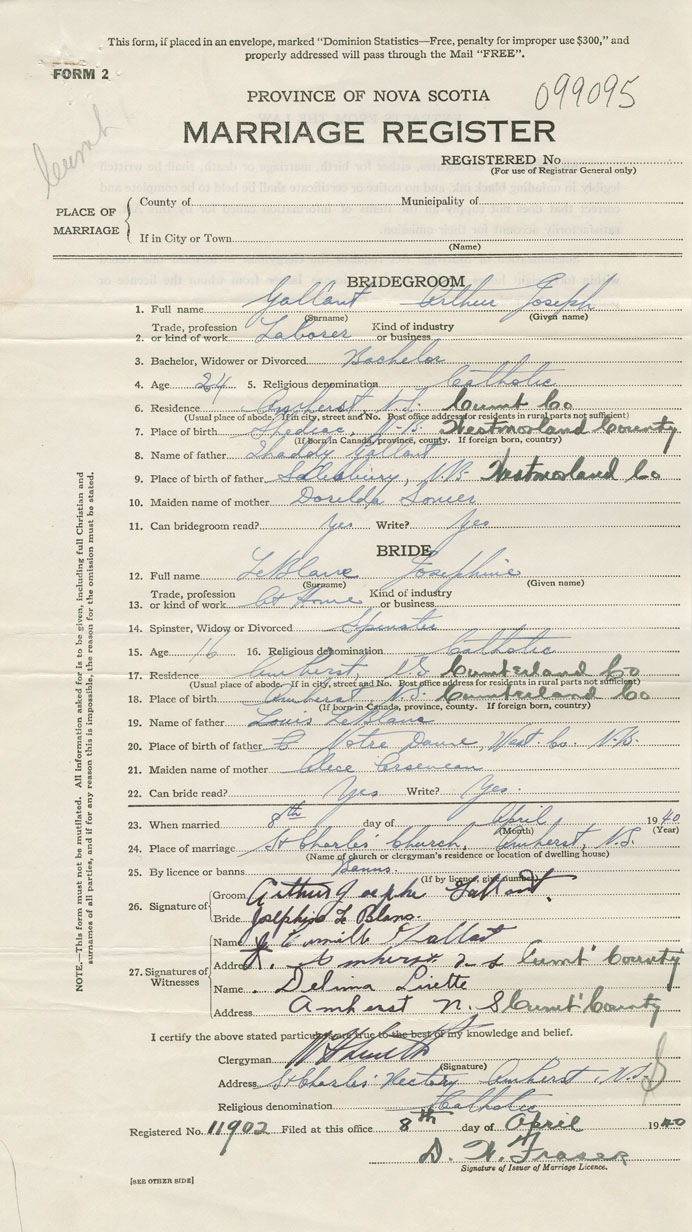 This form, if placed in an envelope, marked "Dominion Statistics—Free, penalty for improper use $300," and
properly addressed will pass through the Mail "FREE".
FORM 2
099095
PROVINCE OF NOVA SCOTIA
Cumb
MARRIAGE REGISTER
REGISTERED No.
(For use of Registrar General only)
PLACE OF MARRIAGE
County of Municipality of
If in City or Town
(Name)
BRIDEGROOM
1. Full name Gallant Arthur Joseph
(Surname) (Given name)
2. Trade, profession or kind of work Laborer Kind of industry or business
3. Bachelor, Widower or Divorced Bachelor
4. Age 24 5. Religious denomination Catholic
6. Residence Amherst N.S. Cumt Co
(Usual place of abode. If in city, street and No. Post office address for residents in rural parts not sufficient)
7. Place of birth Shediac, N.B. Westmorland County
(If born in Canada, province, county. If foreign born, country)
8. Name of father Thaddy Gallant
9. Place of birth of father Salisbury, N.B. Westmorland Co
10. Maiden name of mother Dorilda
11. Can bridegroom read? Yes Write? Yes
BRIDE
12. Full name LeBlanc Josephine
(Surname) (Given name)
13. Trade, profession or kind of work At Home Kind of industry or business
14. Spinster, Widow or Divorced Spinster
15. Age 16 16. Religious denomination Catholic
17. Residence Amherst, N.S. Cumberland Co
(Usual place of abode. If in city, street and No. Post office address for residents in rural parts not sufficient)
18. Place of birth Amherst, N.S. Cumberland Co
(If born in Canada, province, county. If foreign born, country)
19. Name of father Louis LeBlanc
20. Place of birth of father Notre Dame, West. Co. N.B.
21. Maiden name of mother Alice Arseneau
22. Can bride read? Yes Write? Yes.
23. When married 8th day of April 1940
(Month) (Year)
24. Place of marriage St Charles' Church, Amherst, N.S.
(Name of church or clergyman's residence or location of dwelling house)
25. By licence or banns Banns.
(If by licence, give number)
26. Signature of
Groom Arthur Joseph Gallant.
Bride Josephine Le Blanc.
27. Signatures of Witnesses
Name Camille Gallant
Address Amherst n.s Cumt' County
Name Delima Lirette
Address Amherst N. S Cumt' County
I certify the above stated particulars are true to the best of my knowledge and belief.
Clergyman
(Signature)
Address St Charles Rectory Amherst, N.S
Religious denomination Catholic
Registered No. 11902 Filed at this office 8th day of April 1940
D. W. Fraser
Signature of Issuer of Marriage Licence.
[SEE OTHER SIDE]
NOTE.—This form must not be mutilated. All information asked for is to be given, including full Christian and
surnames of all parties, and if for any reason this is impossible, the reason for the omission must be stated.